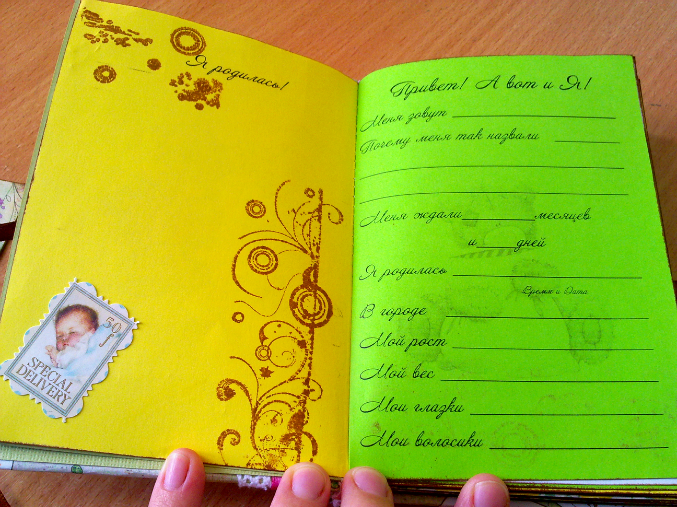 Я родилась!
50
f
SPECIAL
DELIVERY
Привет! А вот и Я!
Меня зовут
Почему меня так назвали
Меня ждали месяцев
и дней
Я родилась
Время и Дата
В городе
Мой рост
Мой вес
Мои глазки
Мои волосики